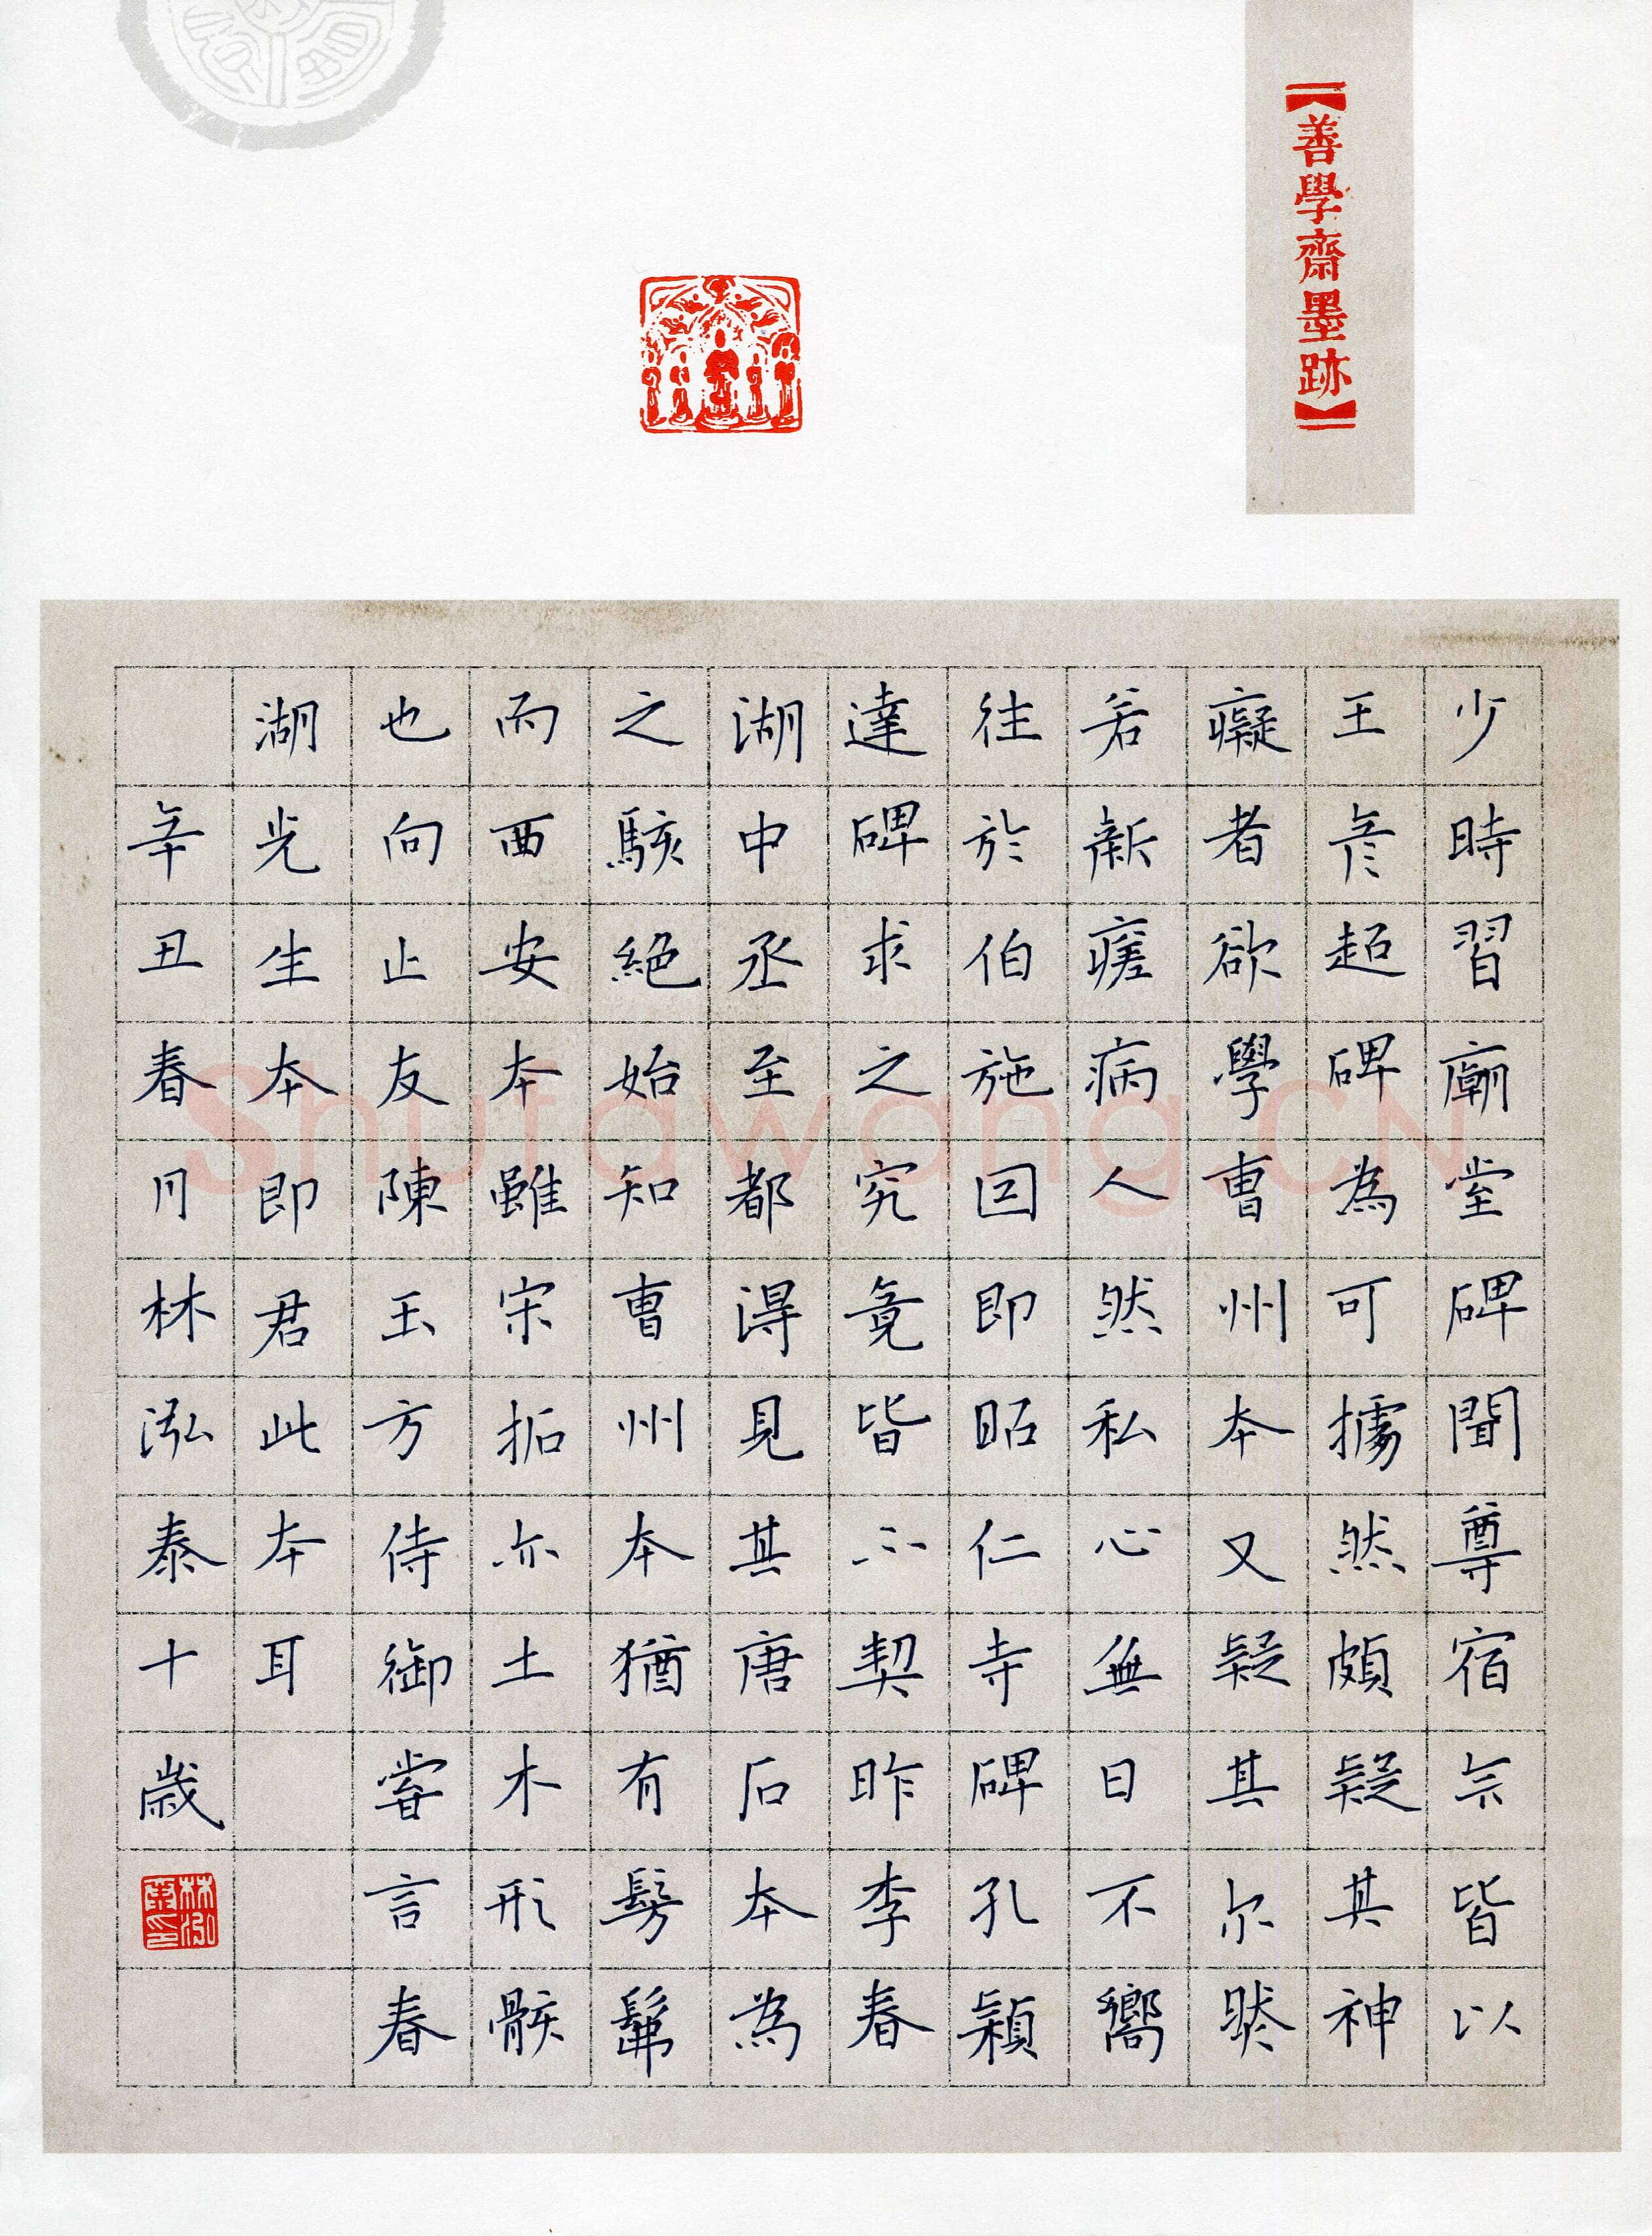 【善學齋墨跡】
少時習廟堂碑聞尊宿宗皆以
王彥超碑為可據然頗疑其神
癡者欲學曹州本又疑其尔
若新瘥病人然私心無日不嚮
往於伯施回即昭仁寺碑孔穎
達碑求之究竟皆不契昨李春
湖中丞至都得見其唐石本為
之駭絕始知曹州本猶有髣髴
而西安本雖宋拓亦土木形骸
也向止友陳玉方侍御嘗言春
湖光生本即君此本耳
辛丑春月林泓泰十歲
林泓泰印
Shufawang.CN